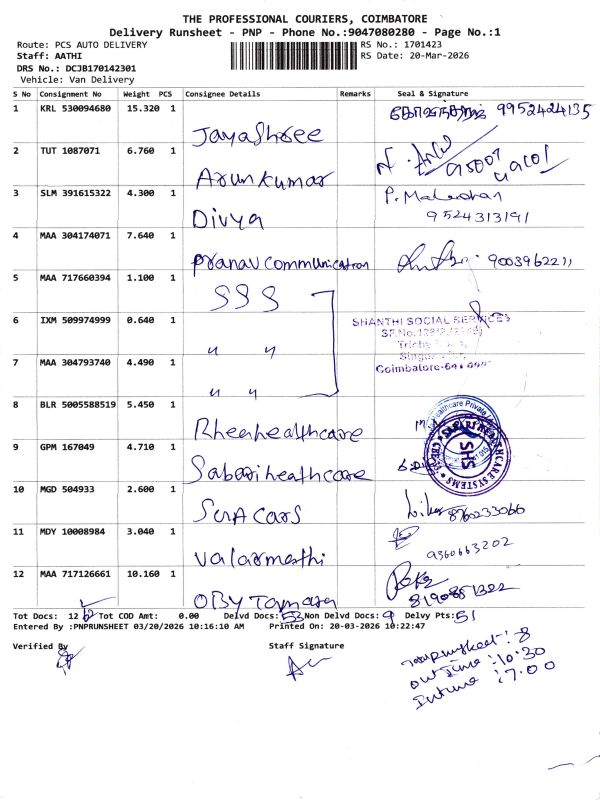 THE PROFESSIONAL COURIERS, COIMBATORE
Delivery Runsheet - PNP - Phone No.:9047080280 - Page No.:1
Route: PCS AUTO DELIVERY RS No.: 1701423
Staff: AATHI RS Date: 20-Mar-2026
DRS No.: DCJB170142301
Vehicle: Van Delivery
S No Consignment No Weight PCS Consignee Details Remarks Seal & Signature
1 KRL 530094680 15.320 1 Jayashree 9952424135
2 TUT 1087071 6.760 1 Arunkumar
3 SLM 391615322 4.300 1 Divya 9524313191
4 MAA 304174071 7.640 1 Pranav communication 9003962211
5 MAA 717660394 1.100 1 SSS
6 IXM 509974999 0.640 1 " " SHANTHI SOCIAL SERVICES
Coimbatore
7 MAA 304793740 4.490 1 " "
8 BLR 5005588519 5.450 1 Rheahealthcare
9 GPM 167049 4.710 1 Sabarihealthcare SHS
10 MGD 504933 2.600 1 SUA Cars 8760233066
11 MDY 10008984 3.040 1 Valarmathi 9360663202
12 MAA 717126661 10.160 1 OBY Tamara
Tot Docs: 12 Tot COD Amt: 0.00 Delvd Docs: 53 Non Delvd Docs: 9 Delvy Pts: 51
Entered By :PNPRUNSHEET 03/20/2026 10:16:10 AM Printed On: 20-03-2026 10:22:47
Verified By Staff Signature
: 8
Out Time : 10:30
In time : 7.00